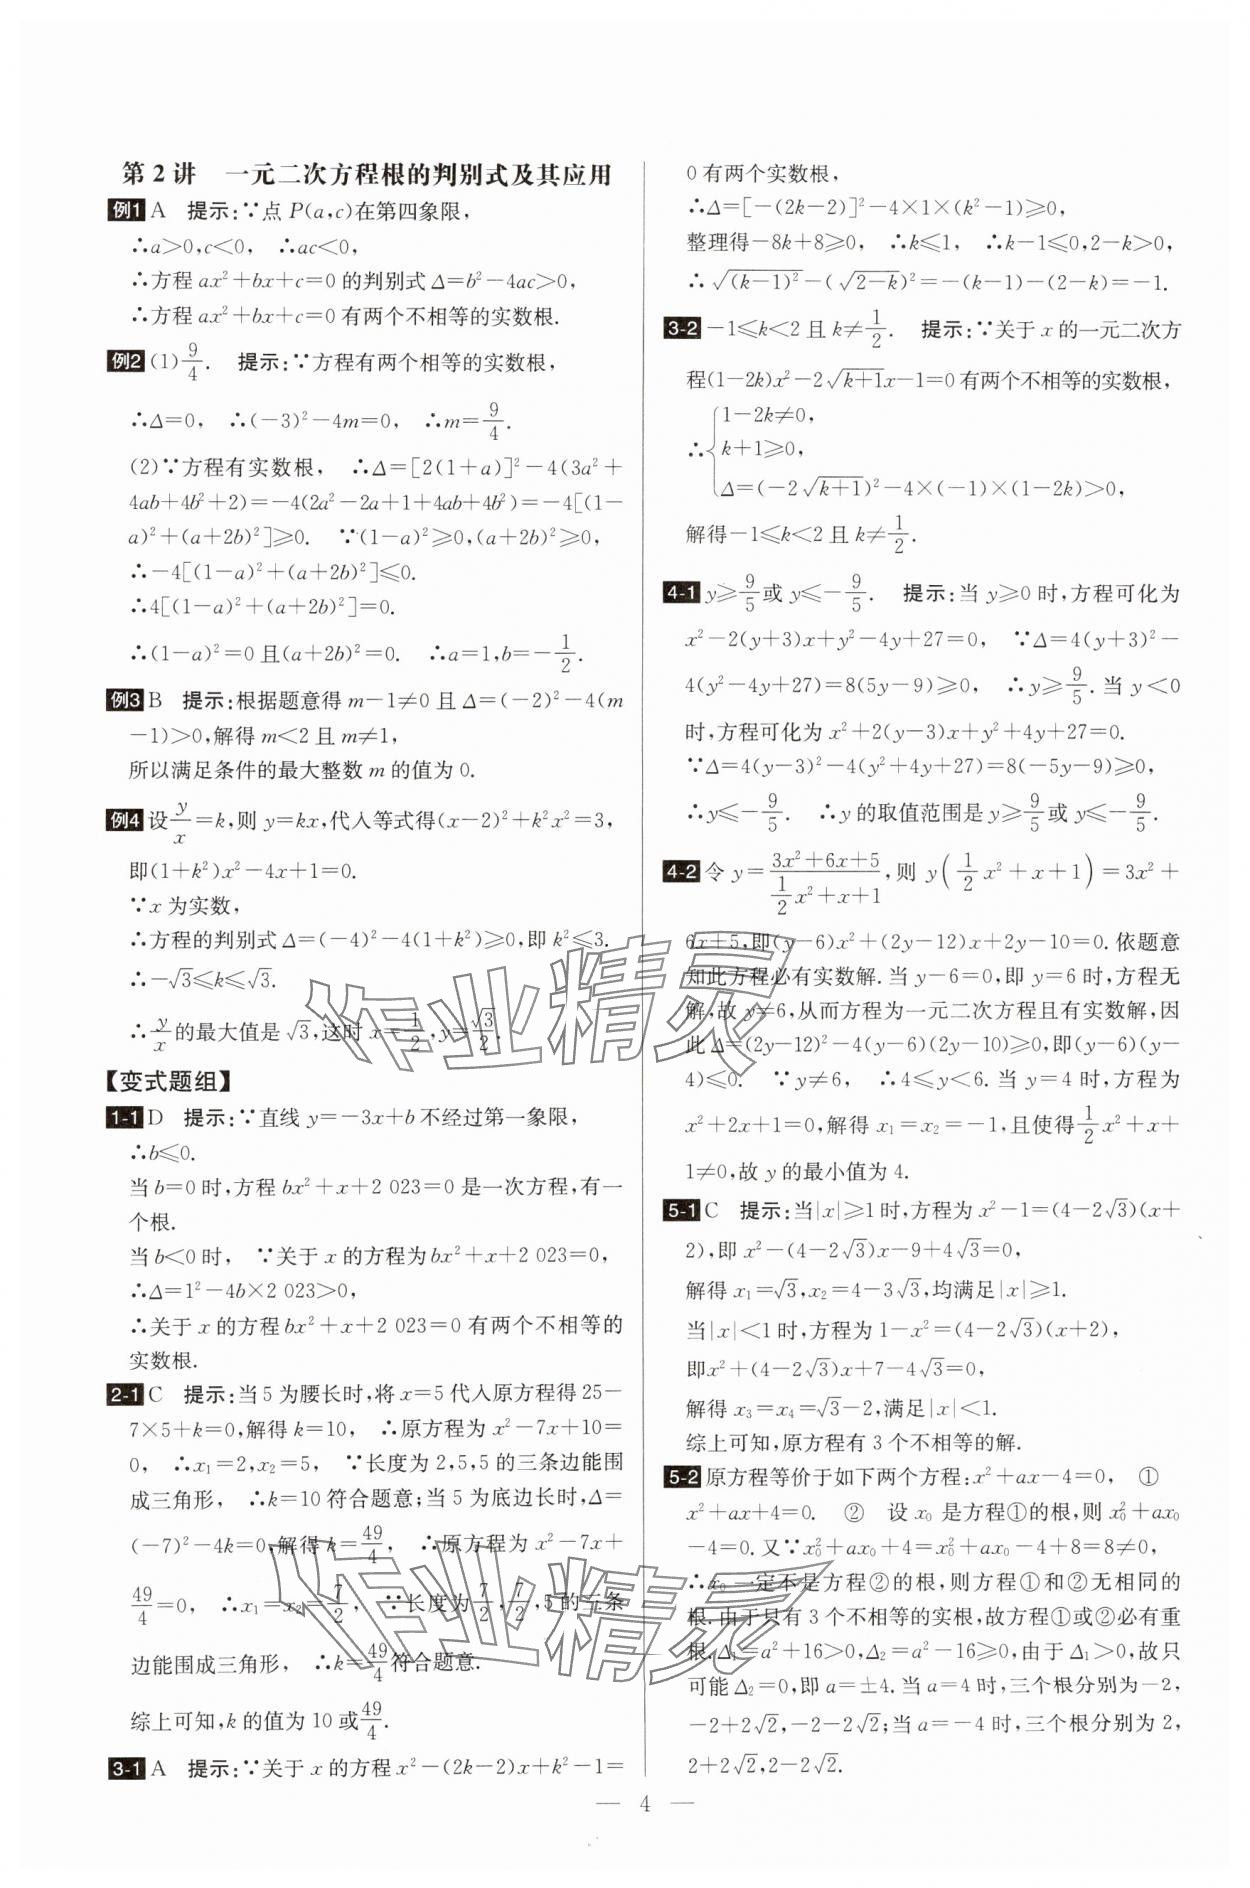 第 2 讲　一元二次方程根的判别式及其应用
例1 A　提示:∵点 P(a,c)在第四象限,
∴a>0,c<0,　∴ac<0,
∴方程 ax²+bx+c=0 的判别式 Δ=b²-4ac>0,
∴方程 ax²+bx+c=0 有两个不相等的实数根.
例2 (1) 9/4.　提示:∵方程有两个相等的实数根,
∴Δ=0,　∴(-3)²-4m=0,　∴m=9/4.
(2)∵方程有实数根,　∴Δ=[2(1+a)]²-4(3a²+
4ab+4b²+2)=-4(2a²-2a+1+4ab+4b²)=-4[(1-
a)²+(a+2b)²]≥0.　∵(1-a)²≥0,(a+2b)²≥0,
∴-4[(1-a)²+(a+2b)²]≤0.
∴4[(1-a)²+(a+2b)²]=0.
∴(1-a)²=0且(a+2b)²=0.　∴a=1,b=-1/2.
例3 B　提示:根据题意得 m-1≠0 且 Δ=(-2)²-4(m
-1)>0,解得 m<2 且 m≠1,
所以满足条件的最大整数 m 的值为 0.
例4 设 y/x=k,则 y=kx,代入等式得(x-2)²+k²x²=3,
即(1+k²)x²-4x+1=0.
∵x 为实数,
∴方程的判别式 Δ=(-4)²-4(1+k²)≥0,即 k²≤3.
∴-√3≤k≤√3.
∴y/x 的最大值是 √3,这时 x=1/2,y=√3/2.
【变式题组】
1-1 D　提示:∵直线 y=-3x+b 不经过第一象限,
∴b≤0.
当 b=0 时,方程 bx²+x+2 023=0 是一次方程,有一
个根.
当 b<0 时,　∵关于 x 的方程为 bx²+x+2 023=0,
∴Δ=1²-4b×2 023>0,
∴关于 x 的方程 bx²+x+2 023=0 有两个不相等的
实数根.
2-1 C　提示:当 5 为腰长时,将 x=5 代入原方程得 25-
7×5+k=0,解得 k=10,　∴原方程为 x²-7x+10=
0,　∴x₁=2,x₂=5,　∵长度为 2,5,5 的三条边能围
成三角形,　∴k=10 符合题意;当 5 为底边长时,Δ=
(-7)²-4k=0,解得 k=49/4,　∴原方程为 x²-7x+
49/4=0,　∴x₁=x₂=7/2,　∵长度为 7/2,7/2,5 的三条
边能围成三角形,　∴k=49/4 符合题意.
综上可知,k 的值为 10 或 49/4.
3-1 A　提示:∵关于 x 的方程 x²-(2k-2)x+k²-1=
0 有两个实数根,
∴Δ=[-(2k-2)]²-4×1×(k²-1)≥0,
整理得-8k+8≥0,　∴k≤1,　∴k-1≤0,2-k>0,
∴√(k-1)²-(√2-k)²=-(k-1)-(2-k)=-1.
3-2 -1≤k<2 且 k≠1/2.　提示:∵关于 x 的一元二次方
程(1-2k)x²-2√k+1x-1=0有两个不相等的实数根,
1-2k≠0,
∴{k+1≥0,
Δ=(-2√k+1)²-4×(-1)×(1-2k)>0,
解得-1≤k<2 且 k≠1/2.
4-1 y≥9/5 或 y≤-9/5.　提示:当 y≥0 时,方程可化为
x²-2(y+3)x+y²-4y+27=0,　∵Δ=4(y+3)²-
4(y²-4y+27)=8(5y-9)≥0,　∴y≥9/5.当 y<0
时,方程可化为 x²+2(y-3)x+y²+4y+27=0.
∵Δ=4(y-3)²-4(y²+4y+27)=8(-5y-9)≥0,
∴y≤-9/5.　∴y 的取值范围是 y≥9/5 或 y≤-9/5.
4-2 令 y=(3x²+6x+5)/(1/2x²+x+1),则 y(1/2x²+x+1)=3x²+
6x+5,即(y-6)x²+(2y-12)x+2y-10=0.依题意
知此方程必有实数解.当 y-6=0,即 y=6 时,方程无
解,故 y≠6,从而方程为一元二次方程且有实数解,因
此 Δ=(2y-12)²-4(y-6)(2y-10)≥0,即(y-6)(y-
4)≤0.　∵y≠6,　∴4≤y<6.当 y=4 时,方程为
x²+2x+1=0,解得 x₁=x₂=-1,且使得1/2x²+x+
1≠0,故 y 的最小值为 4.
5-1 C　提示:当|x|≥1时,方程为 x²-1=(4-2√3)(x+
2),即 x²-(4-2√3)x-9+4√3=0,
解得 x₁=√3,x₂=4-3√3,均满足|x|≥1.
当|x|<1时,方程为 1-x²=(4-2√3)(x+2),
即x²+(4-2√3)x+7-4√3=0,
解得 x₃=x₄=√3-2,满足|x|<1.
综上可知,原方程有 3 个不相等的解.
5-2 原方程等价于如下两个方程:x²+ax-4=0,　①
x²+ax+4=0.　②　设 x₀ 是方程①的根,则 x₀²+ax₀
-4=0.又∵x₀²+ax₀+4=x₀²+ax₀-4+8=8≠0,
∴x₀ 一定不是方程②的根,则方程①和②无相同的
根.由于只有 3 个不相等的实根,故方程①或②必有重
根.Δ₁=a²+16>0,Δ₂=a²-16≥0,由于 Δ₁>0,故只
可能 Δ₂=0,即 a=±4.当 a=4 时,三个根分别为-2,
-2+2√2,-2-2√2;当 a=-4 时,三个根分别为 2,
2+2√2,2-2√2.
— 4 —
作业精灵
作业精灵